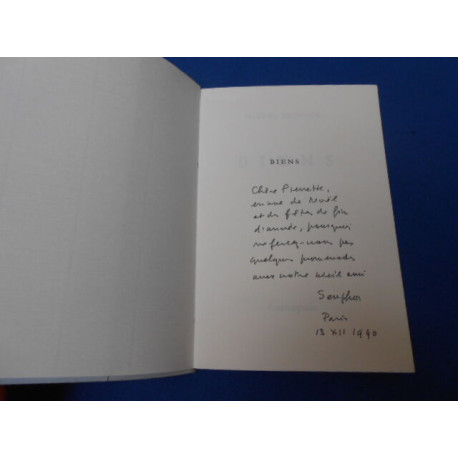 BIENS
Chère Pierrette,
en vue de Noël
et des fêtes de fin
d'année, pourquoi
ne ferez-vous pas
quelques promenades
avec notre vieil ami
Paris
13 XII 1990